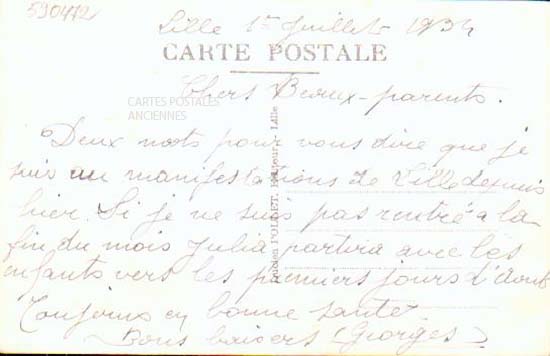 590472
Lille 1er Juillet 1934
CARTE POSTALE
Chers Beaux-parents.
CARTES POSTALES
ANCIENNES
Deux mots pour vous dire que je
suis au manifestations de Lille depuis
hier. Si je ne suis pas rentré a la
fin du mois Julia partira avec les
enfants vers les premiers jours d'Aout
Toujours en bonne santé.
Bons baisers (Georges)
Lucien POLLET, Editeur, Lille